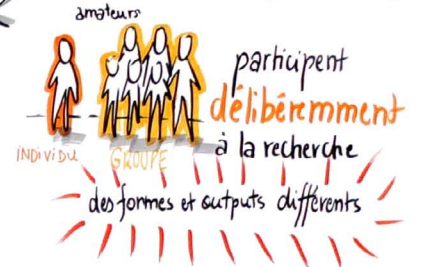 amateurs
INDIVIDU
GROUPE
participent
délibéremment
à la recherche
des formes et outputs différents